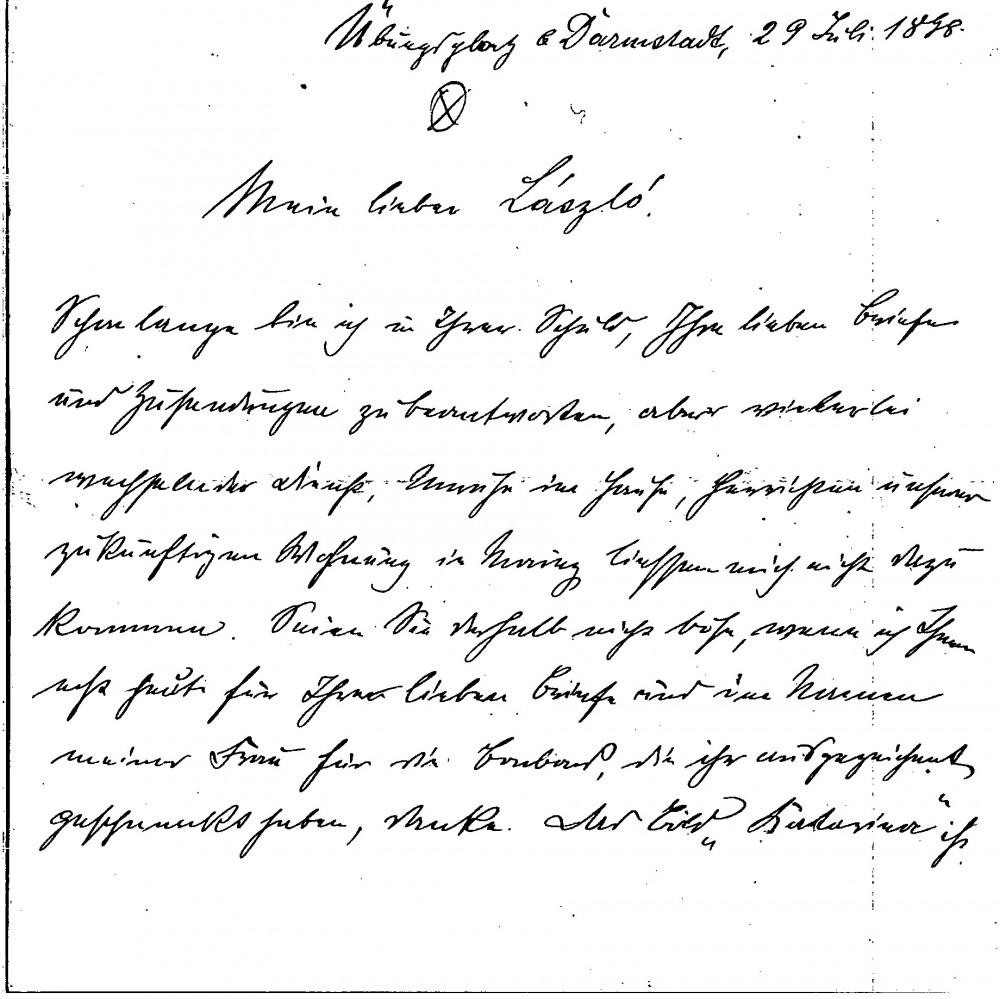 Übungsplatz b Darmstadt, 29 Juli 1898.
Mein lieber László!
Schon lange bin ich in Ihrer Schuld, Ihre lieben Briefe
und Zusendungen zu beantworten, aber vielerlei
wechselnder Dienst, Unruhe im Hause, Herrichten unserer
zukünftigen Wohnung in Mainz liessen mich nicht dazu
kommen. Seien Sie deshalb nicht böse, wenn ich Ihnen
erst heute für Ihre lieben Briefe und im Namen
meiner Frau für die Bonbons, die ihr ausgezeichnet
geschmeckt haben, danke. Das Bild „Katarina“ ist